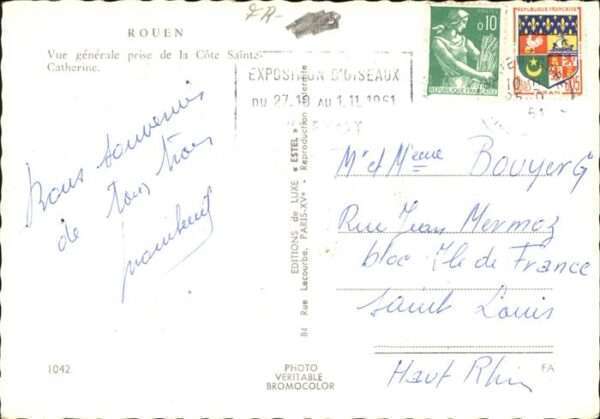 FR-
ROUEN
Vue générale prise de la Côte Sainte-
Catherine.
EXPOSITION D'OISEAUX
DU 27.10 AU 1.11.1961
0,10
REPUBLIQUE FRANÇAISE
REPUBLIQUE FRANÇAISE
0,05
ORAN
61
Bons souvenirs
de tous trois
EDITIONS de LUXE « ESTEL » - Reproduction interdite
84 Rue Lacourbe, PARIS-XVe
Mr et Meme Bouyer G
Rue Jean Mermoz
bloc Ile de France
Saint Louis
Haut Rhin
1042
PHOTO
VERITABLE
BROMOCOLOR
FA